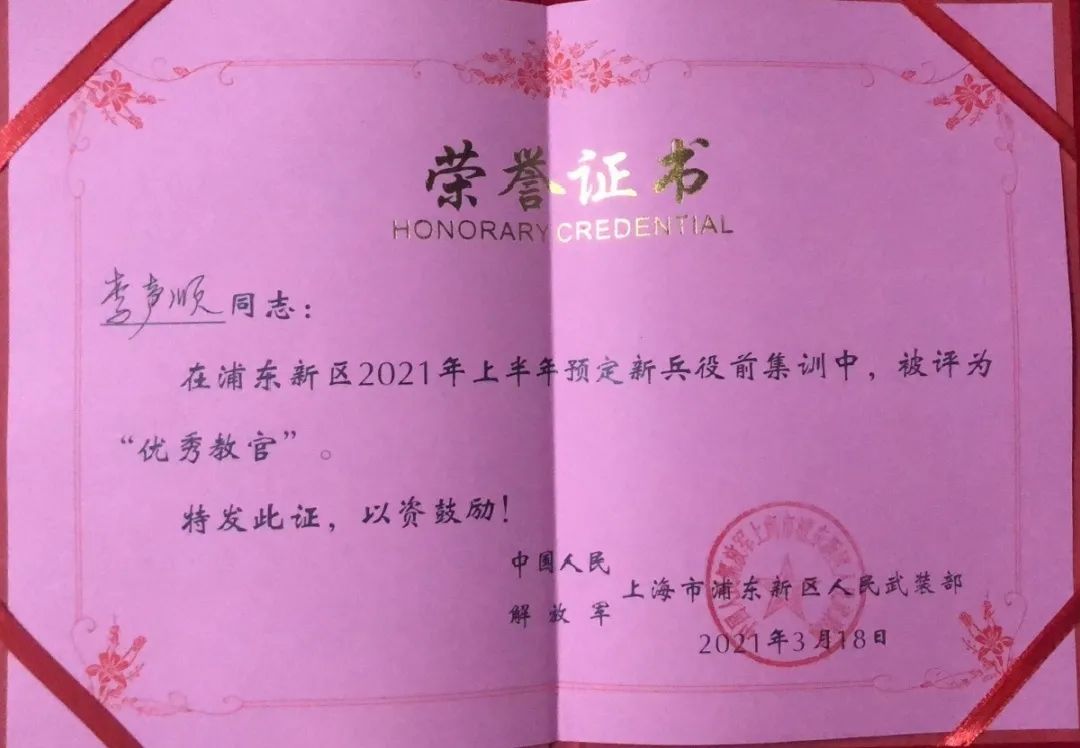 荣誉证书
HONORARY CREDENTIAL
李声顺同志：
在浦东新区2021年上半年预定新兵役前集训中，被评为
“优秀教官”。
特发此证，以资鼓励！
中国人民
解放军
上海市浦东新区人民武装部
2021年3月18日